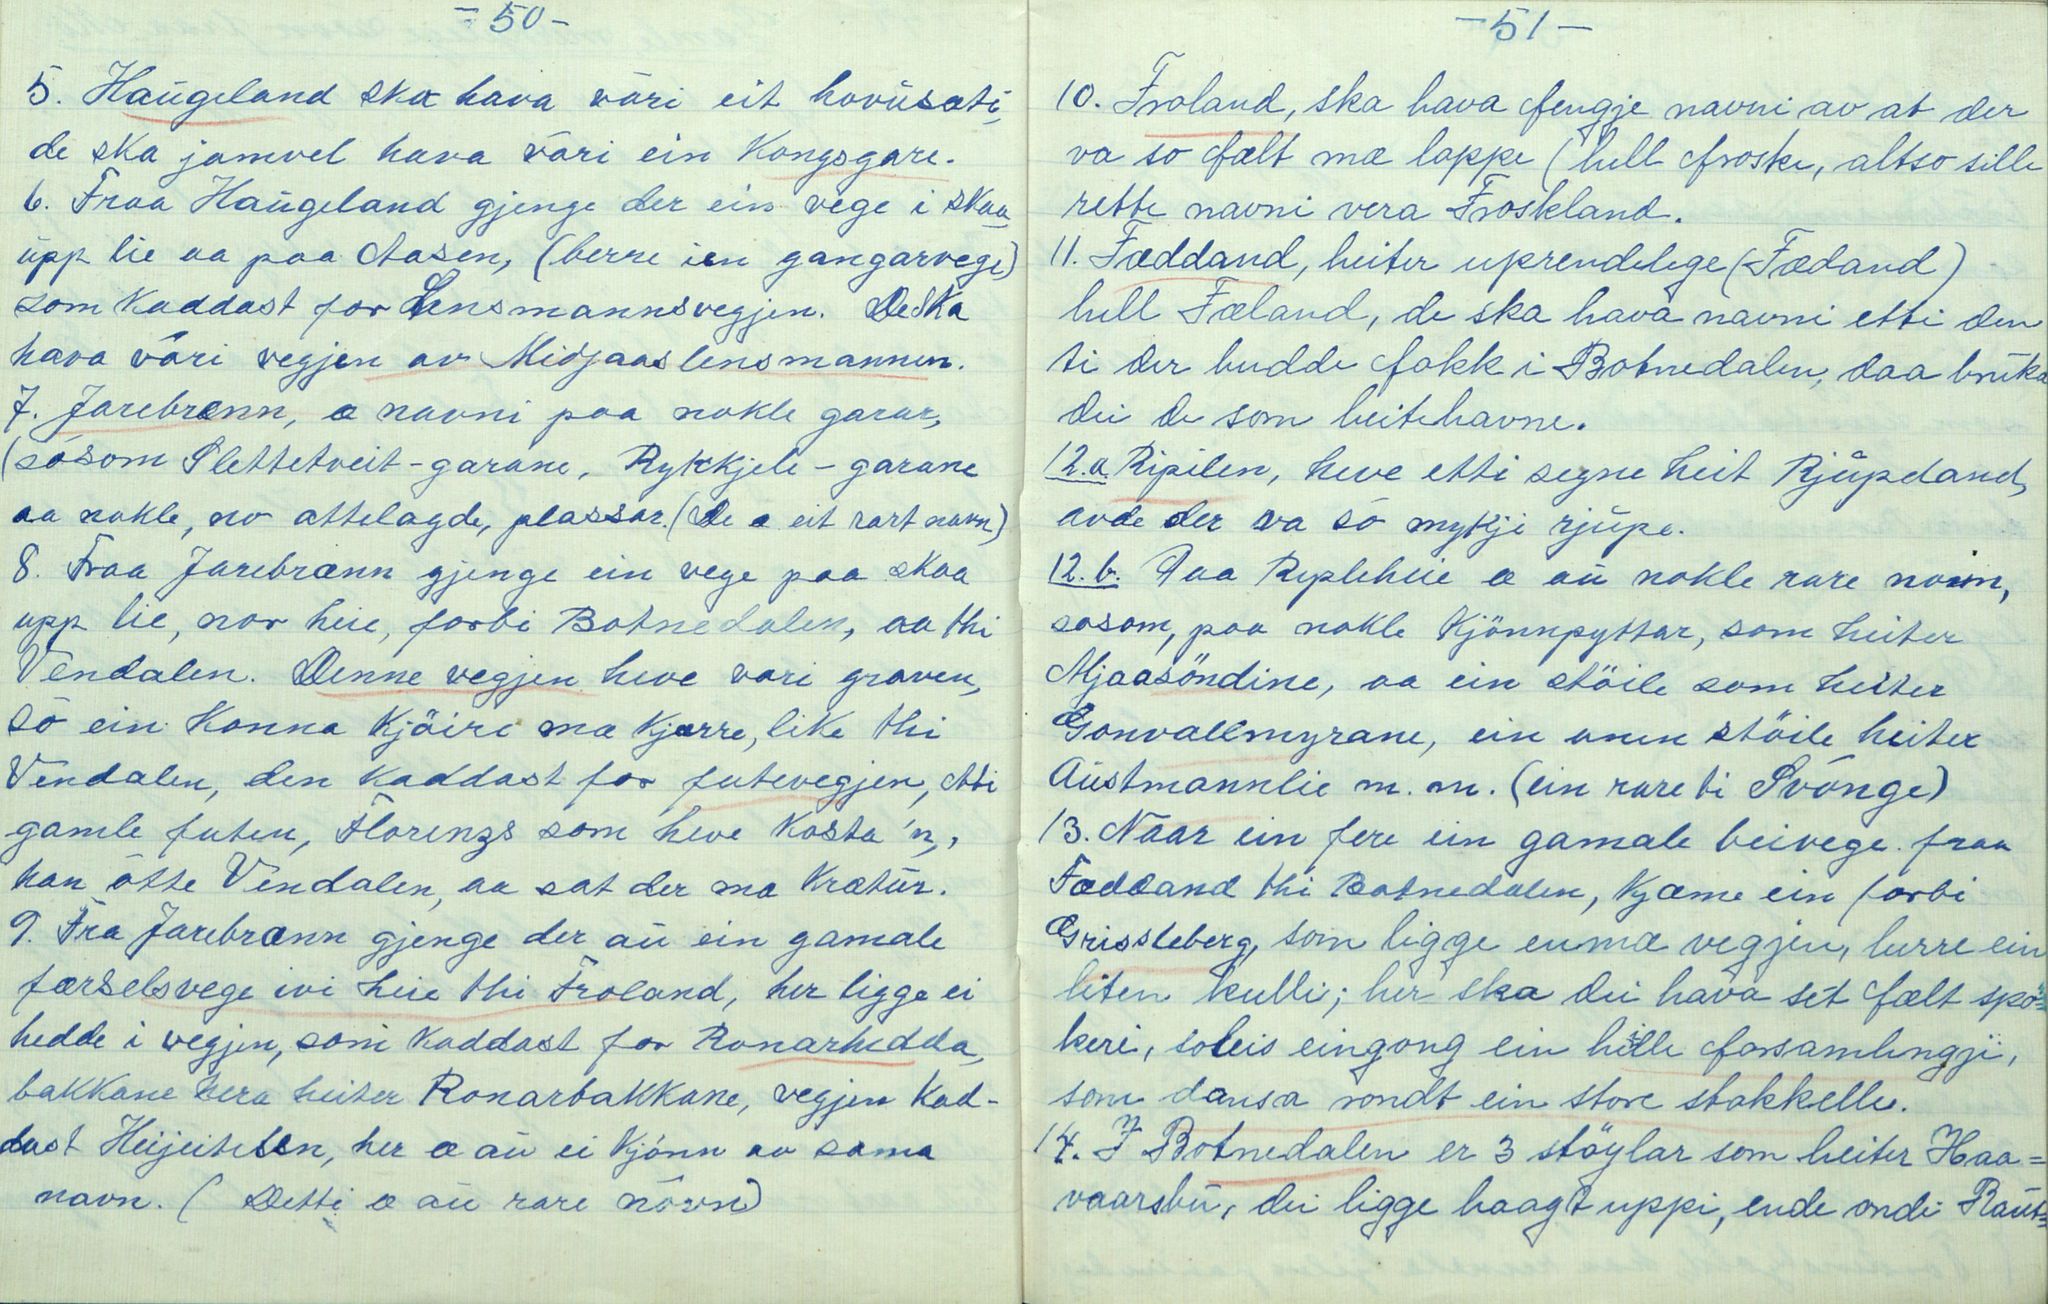 - 50 -
5. Haugeland ska hava vöri eit hovüsæti,
de ska jamvel hava vöri ein Kongsgare.
6. Fraa Haugeland gjenge der ein vege i skaa
üpp lie aa paa Aasen, (berre ien gangarvege)
som kaddast for Lensmannsvegjen. De ska
hava vöri vegjen av Midjaaslensmannen.
7. Jarebrænn, æ navni paa nokle garar,
(sósom Slettetveit-garane, Rykkjele-garane
aa nokle, no attelagde, plassar. (De æ eit rart navn)
8. Fraa Jarebrænn gjenge ein vege paa skaa
upp lie, nor heie, forbi Botnedalen, aa thi
Vendalen. Denne vegjen heve vori graven,
só ein konna kjöire mæ kjærre, like thi
Vendalen, den kaddast for futevegjen, etti
gamle futen, Florenzs som heve kosta 'n,
han òtte Vendalen, aa sat der mæ krætür.
9. Fra Jarebrænn gjenge der aü ein gamale
færselsvege ivi heie thi Froland, her ligge ei
hedde i vegjen, som kaddast for Ronarhedda,
bakkane hera heiter Ronarbakkane, vegjen kad-
dast Heijeitelen, her æ aü ei kjónn av sama
navn. (Detti æ aü rare növn)
- 51 -
10. Froland, ska hava fengje navni av at der
va so fælt mæ loppe (hell froske, altso sille
rette navni vera Froskland.
11. Fæddand, heiter uprendelege (Fædand)
hell Fæland, de ska hava navni etti den
ti der budde fokk i Botnedalen, daa brüka
dei de som beitehavne.
12.a. Ripilen, heve etti segne heit Rjüpdand,
avde der va só mykji rjüpe.
12.b. Paa Ripleheie æ aü nokle rare navn,
sosom, paa nokle Kjönnpyttar, som heiter
Mjaasöndine, aa ein stöile som heiter
Gonvallmyrane, ein anen stöile heiter
Aüstmannlie m. m. (ein rare ti Svónge)
13. Naar ein fere ein gamale beivege fraa
Fæddand thi Botnedalen, kjæme ein forbi
Grissleberg, som ligge enmæ vegjen, burre ein
liten kulli; her ska dei hava sét fælt spö=
keri, soleis eingong ein heille forsamlingji,
som dansa rondt ein store stakkelle.
14. I Botnedalen er 3 stöylar som heiter Haa=
vaarsbü, dei ligge haagt uppi, ende ondi Raut=